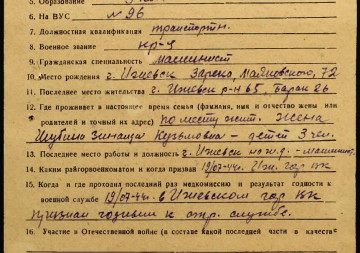 5. Образование
6. На ВУС № 96
7. Должностная квалификация транспортн.
8. Военное звание кр-ц
9. Гражданская специальность машинист
10. Место рождения г. Ижевск Зарека, Маяковского, 72
11. Последнее место жительства г. Ижевск р-н 65, Барак 26
12. Где проживает в настоящее время семья (фамилия, имя и отчество жены или
родителей и точный их адрес) по месту жит. Жена
Шубина Зинаида Кузьмовна – детей 3 чел.
13. Последнее место работы и должность г. Ижевск ж.д. – машинист
14. Каким райгорвоенкоматом и когда призван 19/07-44г. Иж. гор ВК
15. Когда и где проходил последний раз медкомиссию и результат годности к
военной службе 19/07-44г. в Ижевском гор ВК
признан годным к стр. службе.
16. Участие в Отечественной войне (в составе какой последней части в качеств